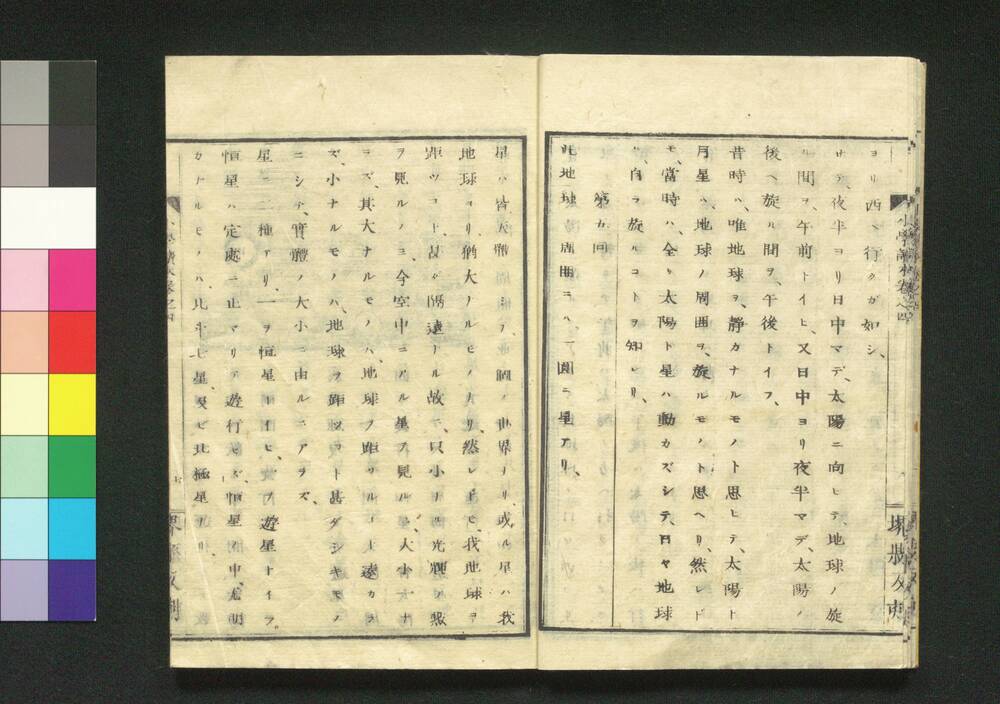 ヨリ西ヘ行クガ如シ、
サテ、夜半ヨリ日中マデ、太陽ニ向ヒテ、地球ノ旋
ル間ヲ、午前トイヒ、又日中ヨリ夜半マデ、太陽ノ
後ヘ旋ル間ヲ、午後トイフ、
昔時ハ、唯地球ヲ、静カナルモノト思ヒテ、太陽ト
月星ハ、地球ノ周囲ヲ、旋ルモノト思ヘリ、然レド
モ、當時ハ、全ク太陽ト星ハ動カズシテ、日ヤ地球
ハ、自ラ旋ルコトヲ知レリ、
第五回
此地球ノ周囲ニハ、一圓ニ星アリ、
星ハ皆大體
世界ナリ、或ル星ハ我
地球ヨリ、猶大ナルモノナリ、然レドモ、我地球ヲ
距ツコト、甚ダ隔遠ナル故ニ、只小
光輝
ヲ見ルノミ、今空中ニアル星ヲ見ルニ、大小
其大ナルモノハ、地球ヲ距
遠カラ
ズ、小ナルモノハ、地球ヲ距ツコト甚ダシキモノ
ニシテ、實體ノ大小ニ由ルニアラズ、
星ニ二種アリ、一ヲ恒星トイヒ、一ヲ遊星トイフ、
恒星ハ定處ニ止マリテ、遊行セズ、恒星ノ中、尤明
カナルモノハ、北斗七星、及ビ北極星ナリ、
小學讀本卷之四
堺縣